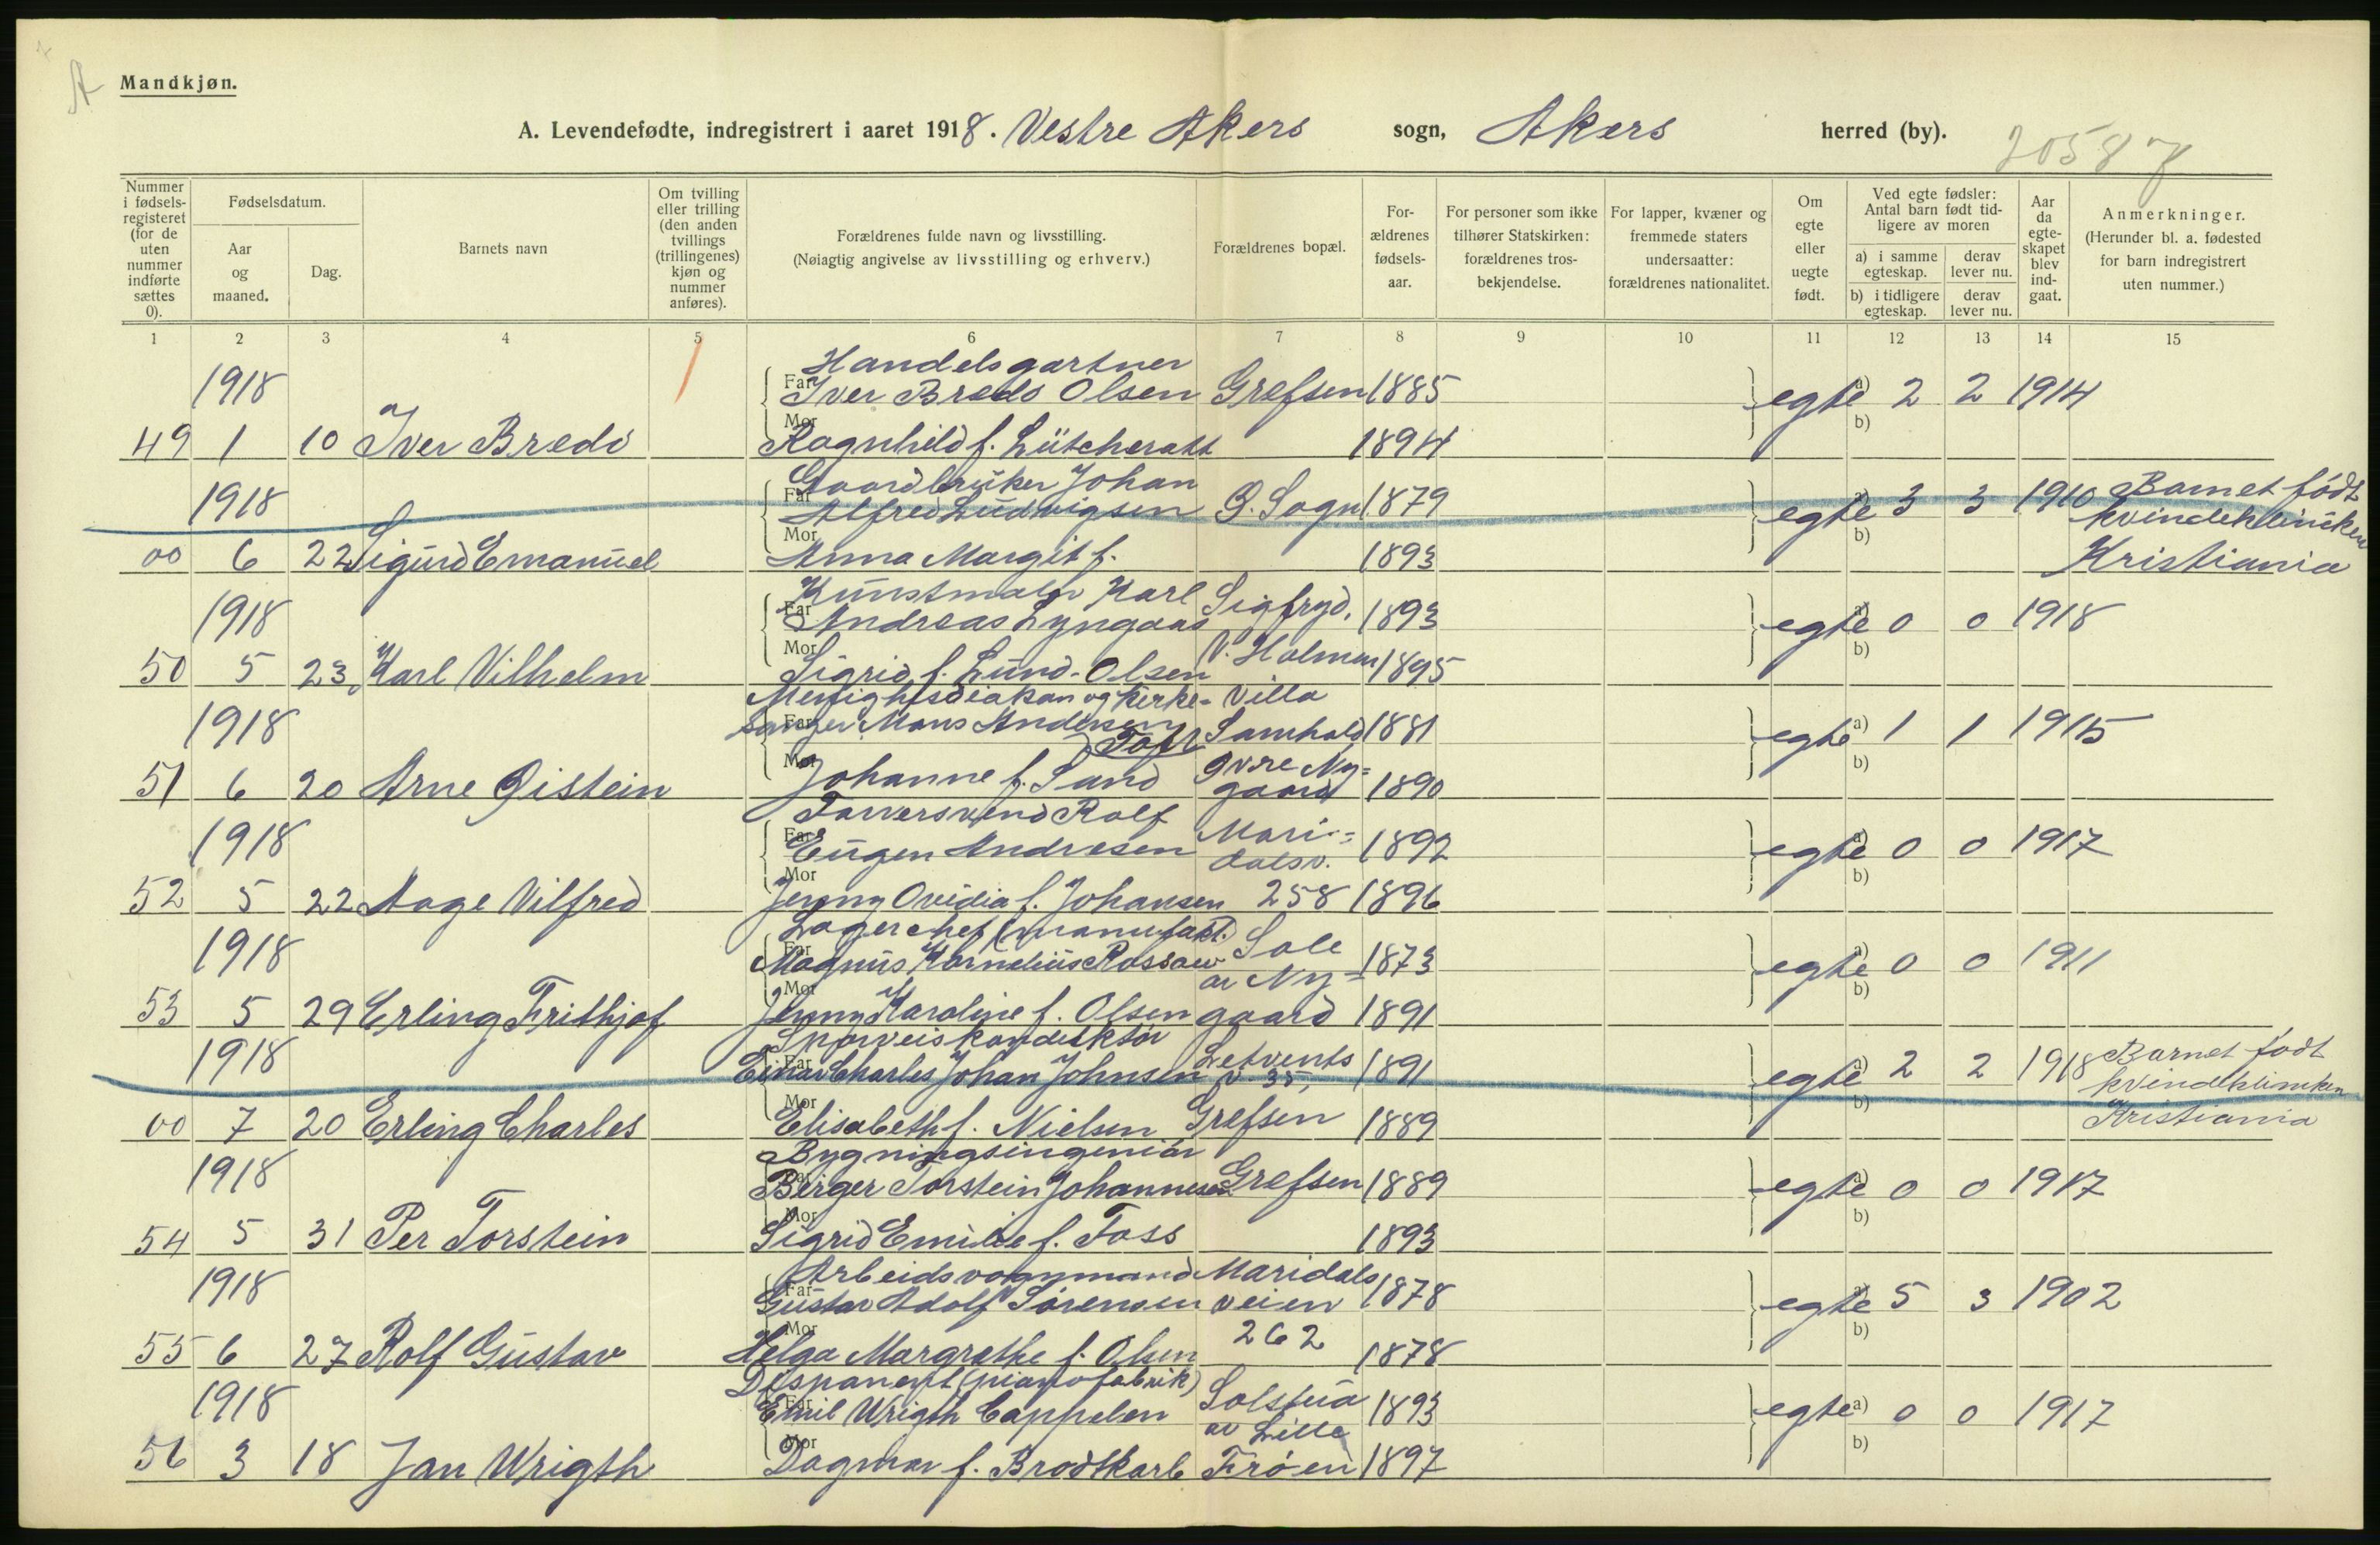 A
Mandkjøn.
A. Levendefødte, indregistrert i aaret 1918. Vestre Akers sogn, Akers herred (by).
20587
Nummer i fødselsregisteret (for de uten nummer indførte sættes 0).
Fødselsdatum.
Aar og maaned.
Dag.
Barnets navn
Om tvilling eller trilling (den anden tvillings (trillingenes) kjøn og nummer anføres).
Forældrenes fulde navn og livsstilling.
(Nøiagtig angivelse av livsstilling og erhverv.)
Forældrenes bopæl.
For-ældrenes fødsels-aar.
For personer som ikke tilhører Statskirken: forældrenes tros-bekjendelse.
For lapper, kvæner og fremmede staters undersaatter: forældrenes nationalitet.
Om egte eller uegte født.
Ved egte fødsler: Antal barn født tid-ligere av moren
a) i samme egteskap.
derav lever nu.
b) i tidligere egteskap.
derav lever nu.
Aar da egte-skapet blev ind-gaat.
Anmerkninger.
(Herunder bl. a. fødested for barn indregistrert uten nummer.)
1 2 3 4 5 6 7 8 9 10 11 12 13 14 15
Handelsgartner
1918 Far Iver Bredo Olsen Grefsen 1885 egte a) 2 2 1914
49 1 10 Iver Bredo Mor Ragnhild f. 1894 b)
Gaardbruker Johan
1918 Far Alfred Ludvigsen Ø. Sogn 1879 egte a) 3 3 1910 Barnet født kvindeklinikken
00 6 22 Sigurd Emanuel Mor Anna Margit f. 1893 b) Kristiania
Kunstmaler Karl
1918 Far Andreas Lyngaas Sigfryd, 1893 egte a) 0 0 1918
50 5 23 Karl Vilhelm Mor Sigrid f. Lund-Olsen V. Holmen 1895 b)
Menighetsdiakon og kirke- Villa
1918 Far sanger Mons Andersen Toft Samhold 1881 egte a) 1 1 1915
51 6 20 Arne Øistein Mor Johanne f. Sand øvre Ny-gaard 1890 b)
Farversvend Rolf
1918 Far Eugen Andresen Mari-dalsv. 1892 egte a) 0 0 1917
52 5 22 Aage Vilfred Mor Jenny Ovidia f. Johansen 258 1896 b)
Lagerchef (manufakt.)
1918 Far Magnus Kornelius Rossow Sole av Ny- 1873 egte a) 0 0 1911
53 5 29 Erling Frithjof Mor Jenny Karoline f. Olsen gaard 1891 b)
Sporveiskonduktør
1918 Far Einar Charles Johan Johnsen v 35, 1891 egte a) 2 2 1918 Barnet født kvindeklinikken
00 7 20 Erling Charles Mor Elisabeth f. Nielsen Grefsen 1889 b) Kristiania
Bygningsingeniør
1918 Far Birger Torstein Johannesen Grefsen 1889 egte a) 0 0 1917
54 5 31 Per Torstein Mor Sigrid Emilie f. Foss 1893 b)
Arbeidsvognmand Maridals
1918 Far Gustav Adolf Sørensen veien 1878 egte a) 5 3 1902
55 6 27 Rolf Gustav Mor Helga Margrethe f. Olsen 262 1878 b)
Disponent (pianofabrik)
1918 Far Emil Wrigth Cappelen Solstua av Lille 1893 egte a) 0 0 1917
56 3 18 Jan Wrigth Mor Dagmar f. Brodtkorb Frøen 1897 b)